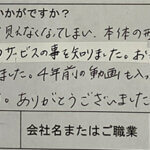 いかがですか？
見れなくなってしまい、本体の
サービスの事を知りました。お
ました。4年前の動画も入っ
。ありがとうございました
会社名またはご職業